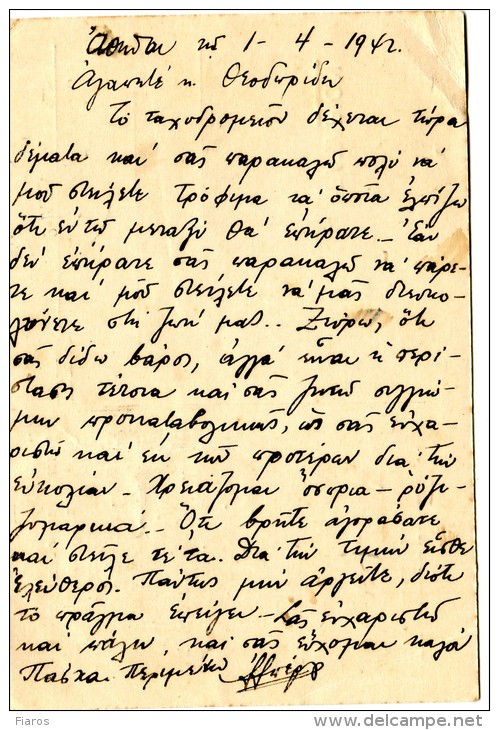 Ἀθῆναι τῇ 1-4-1942.
Ἀγαπητέ κ. Θεοδωρίδη
Τό ταχυδρομεῖον δέχεται τώρα
δέματα καί σᾶς παρακαλῶ πολύ νά
μοῦ στείλετε τρόφιμα τά ὁποῖα ἐλπίζω
ὅτι ἐν τῶ μεταξύ θά ἐπήρατε - Ἐάν
δέν ἐπήρατε σᾶς παρακαλῶ νά πάρε-
τε καί μοῦ στείλετε νά μᾶς διευκο-
λύνετε στή ζωή μας.. Ξεύρω, ὅτι
σᾶς δίδω βάρος, ἀλλά εἶναι ἡ περί-
στασις τέτοια καί σᾶς ζητῶ συγγνώ-
μην προκαταβολικῶς, ὡς σᾶς εὐχα-
ριστῶ καί ἐκ τῶν προτέρων διά τήν
εὐκολίαν - Χρειάζομαι ὄσπρια - ρύζι-
ζυμαρικά.. Ὅτι βρῆτε ἀγοράσατε
καί στείλετέ τα. Διά τήν τιμήν εἶσθε
ἐλεύθερος. Πάντως μήν ἀργεῖτε, διότι
τό πρᾶγμα ἐπείγει - Σᾶς εὐχαριστῶ
καί πάλιν, καί σᾶς εὔχομαι καλό
Πάσχα. Περιμένω
Fiaros
www.delcampe.net